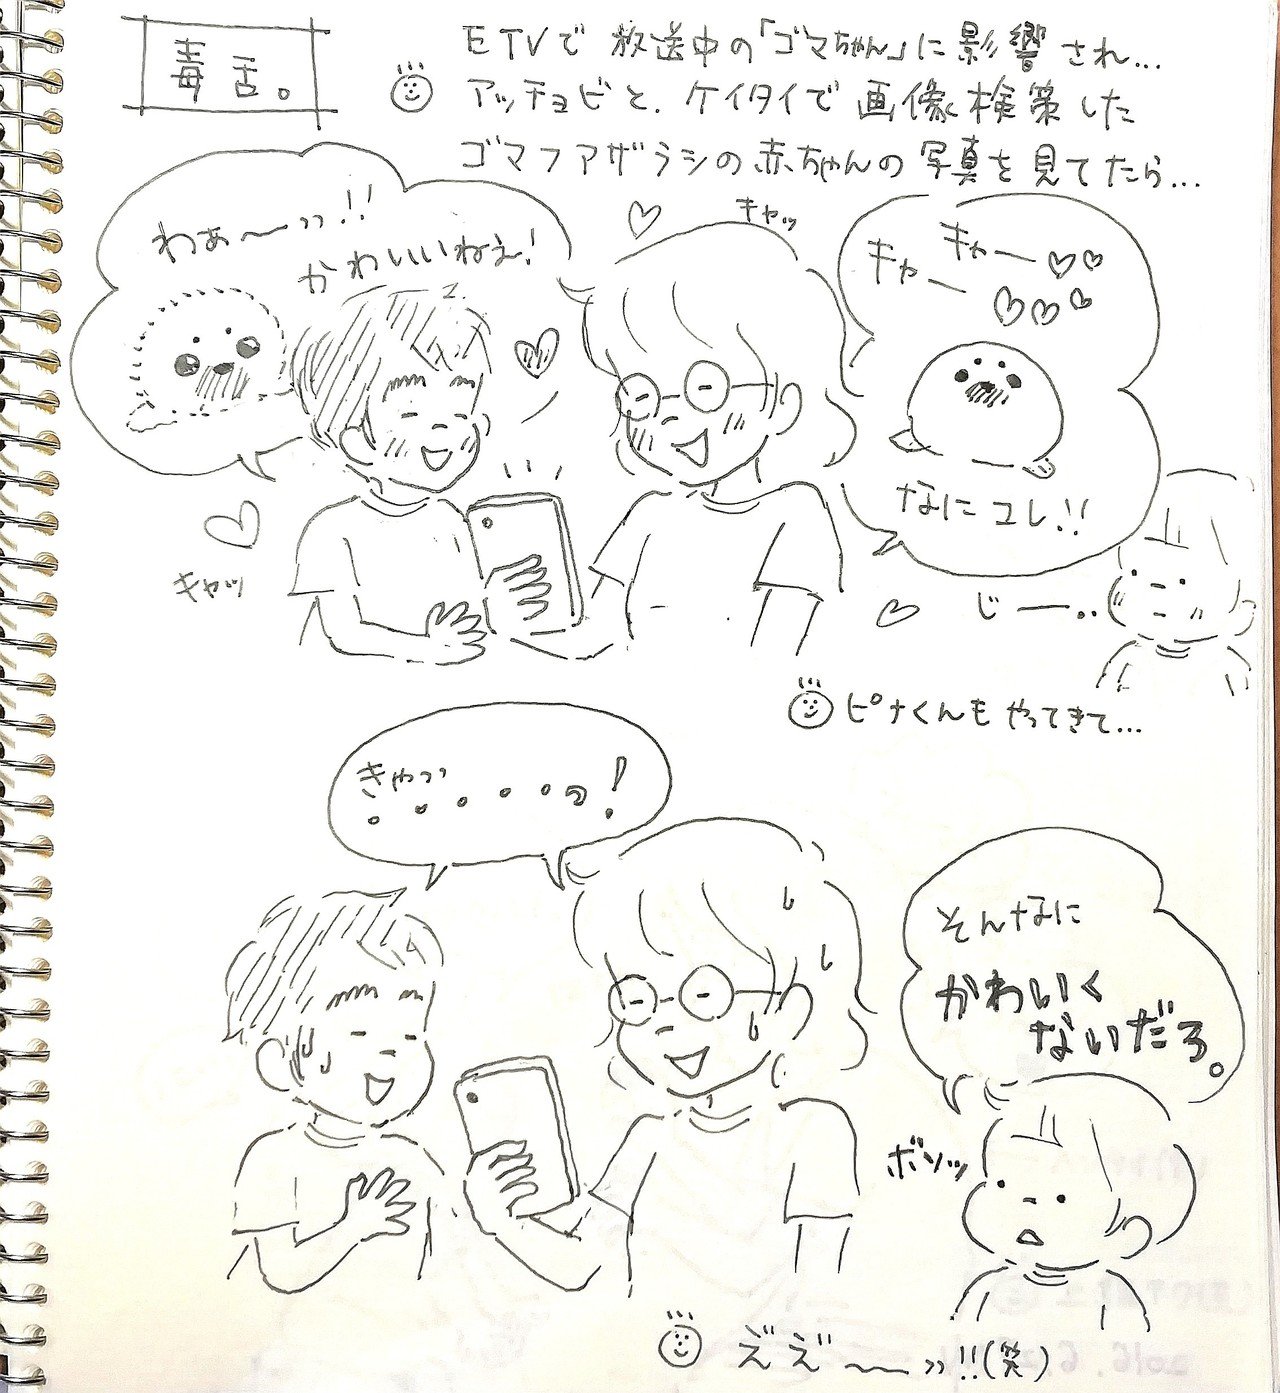 毒舌。
ETVで放送中の「ゴマちゃん」に影響され…
アッチョビと、ケイタイで画像検索した
ゴマフアザラシの赤ちゃんの写真を見てたら…
わぁ〜ッ!!
かわいいねえ!
キャッ
キャー
キャー
なにコレ!!
キャッ
じー‥
ピナくんもやってきて…
きゃッ
・・・・・っ!
そんなに
かわいく
ないだろ。
ボソッ
ええ〜ッ!!(笑)